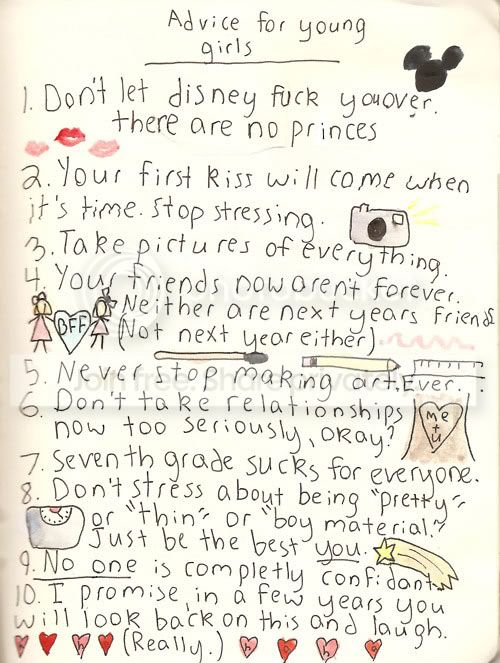 Advice for young
girls
1. Don't let disney fuck you over.
there are no princes
2. Your first kiss will come when
it's time. Stop stressing.
3. Take pictures of everything.
4. Your friends now aren't forever.
Neither are next years friends
BFF
(Not next year either).
5. Never stop making art. Ever.
6. Don't take relationships
now too seriously, okay?
me
+
u
7. Seventh grade sucks for everyone.
8. Don't stress about being "pretty"
or "thin" or "boy material."
Just be the best you.
9. No one is completly confidant.
10. I promise, in a few years you
will look back on this and laugh.
(Really.)
h a h a